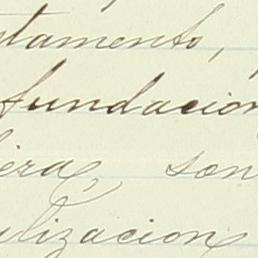 stamento,
fundacion
iera, son
ilizacion